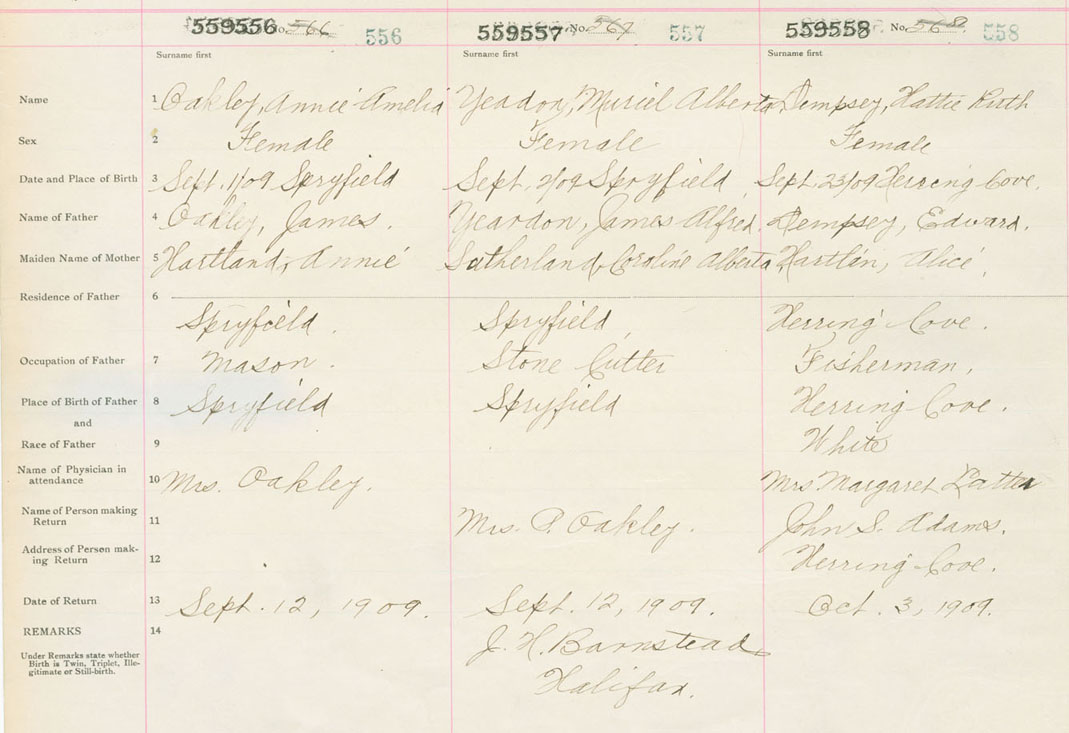 559556 No. 566 556 559557 No. 567 557 559558 No. 568. 558
Surname first Surname first Surname first
Name 1 Oakley, Annie Amelia Yeadon, Muriel Alberta Dempsey, Hattie Ruth
Sex 2 Female Female Female
Date and Place of Birth 3 Sept. 1/09 Spryfield Sept. 2/09 Spryfield Sept. 23/09 Herring Cove.
Name of Father 4 Oakley, James. Yeardon, James Alfred. Dempsey, Edward.
Maiden Name of Mother 5 Hartland, Annie Sutherland, Coroline Alberta Hartlin, Alice,
Residence of Father 6
Spryfield. Spryfield, Herring Cove.
Occupation of Father 7 Mason. Stone Cutter Fisherman,
Place of Birth of Father 8 Spryfield Spryfield Herring Cove.
and
Race of Father 9 White
Name of Physician in
attendance 10 Mrs. Oakley. Mrs Margaret
Name of Person making
Return 11 Mrs. P. Oakley. John S. Adams.
Address of Person mak-
ing Return 12 Herring Cove.
Date of Return 13 Sept. 12, 1909. Sept. 12, 1909. Oct. 3, 1909.
REMARKS 14 J. H. Barnstead
Under Remarks state whether
Birth is Twin, Triplet, Ille-
gitimate or Still-birth.
Halifax.